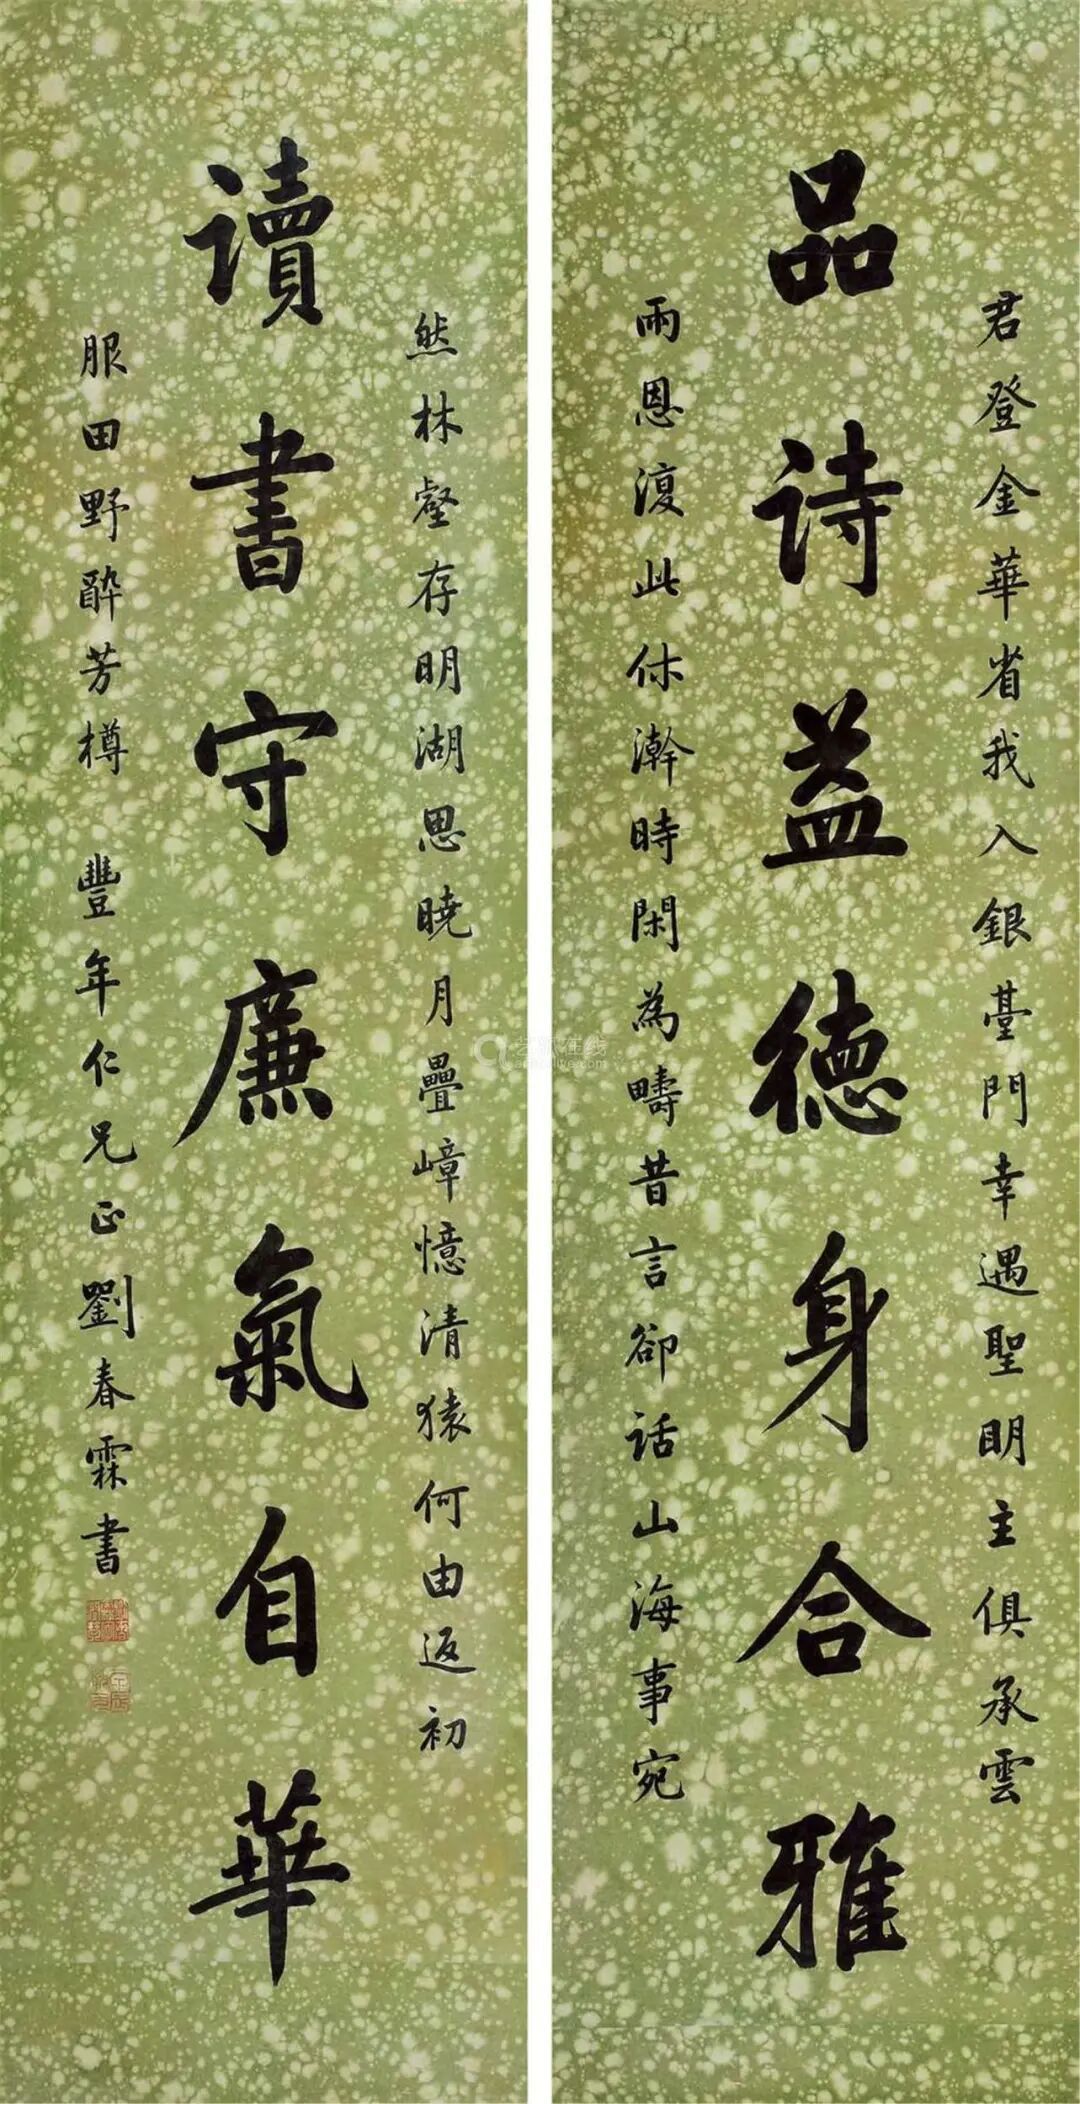 君登金華省我入銀臺門幸遇聖明主俱承雲
品诗益德身合雅
雨恩澓此休澣時閑為疇昔言卻話山海事宛
然林壑存明湖思曉月疊嶂憶清猿何由返初
讀書守廉氣自華
服田野醉芳樽 豐年仁兄正劉春霖書